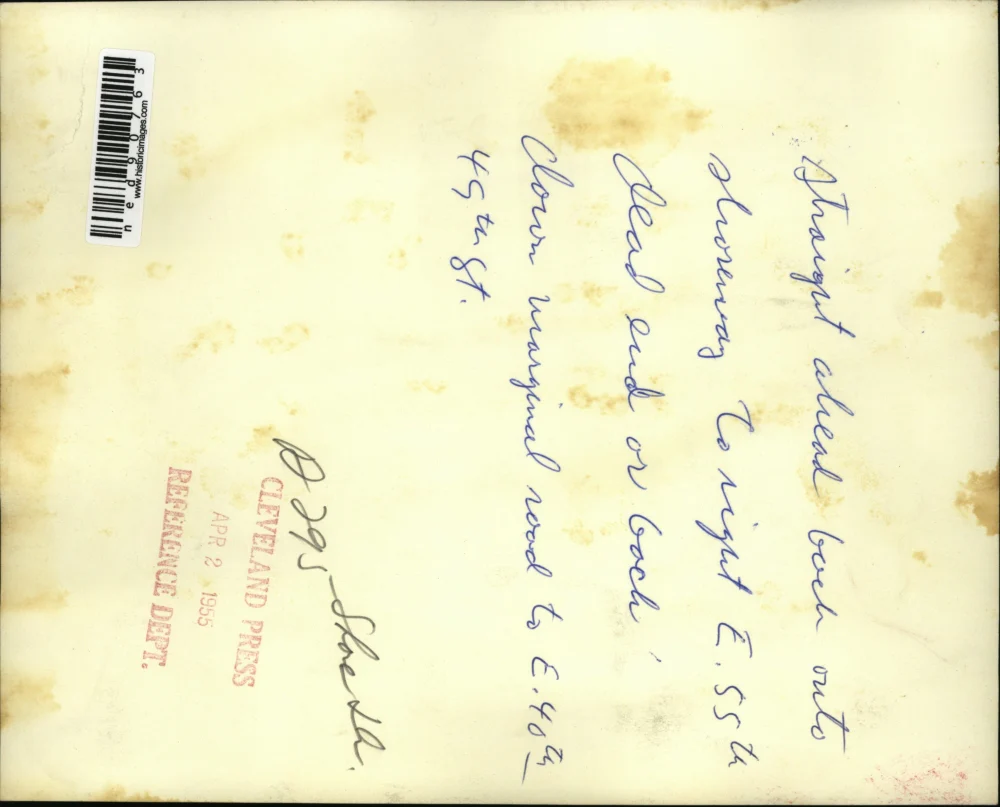 Straight ahead back onto
shoreway to right E. 55th
dead end or back
down marginal road to E. 40th
49th St.
A 295
CLEVELAND PRESS
APR 2 1955
REFERENCE DEPT.
ned90763
www.historicimages.com